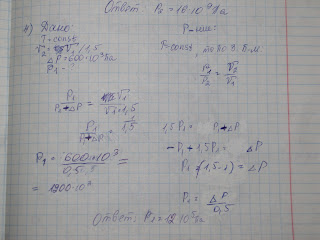 Ответ: P₂ = 16·10⁴ Па
4) Дано:
T = const
V₂ = V₁/1,5
ΔP = 600·10³ Па
P₁ - ?
Р-ние:
T = const, то по з. Б.-М.
P₁/P₂ = V₂/V₁
P₁/(P₁+ΔP) = V₁/(V₁·1,5)
P₁/(P₁+ΔP) = 1/1,5
1,5P₁ = P₁+ΔP
-P₁ + 1,5P₁ = ΔP
P₁ (1,5-1) = ΔP
P₁ = ΔP/0,5
P₁ = 600·10³/0,5 =
= 1200·10³
Ответ: P₁ = 12·10⁵ Па